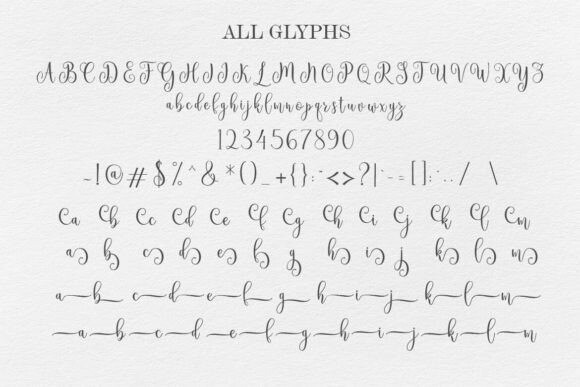 ALL GLYPHS
A B C D E F G H I J K L M N O P Q R S T U V W X Y Z
abcdefghijklmnopqrstuvwxyz
1234567890
~!@#$%^&*()_+{}:"<>?|`-=[]:'../ \
Ca Cb Cc Cd Ce Cf Cg Ch Ci Cj Ck Cl Cm
a b c d e f g h i j k l m
a b c d e f g h i j k l m
a b c d e f g h i j k l m